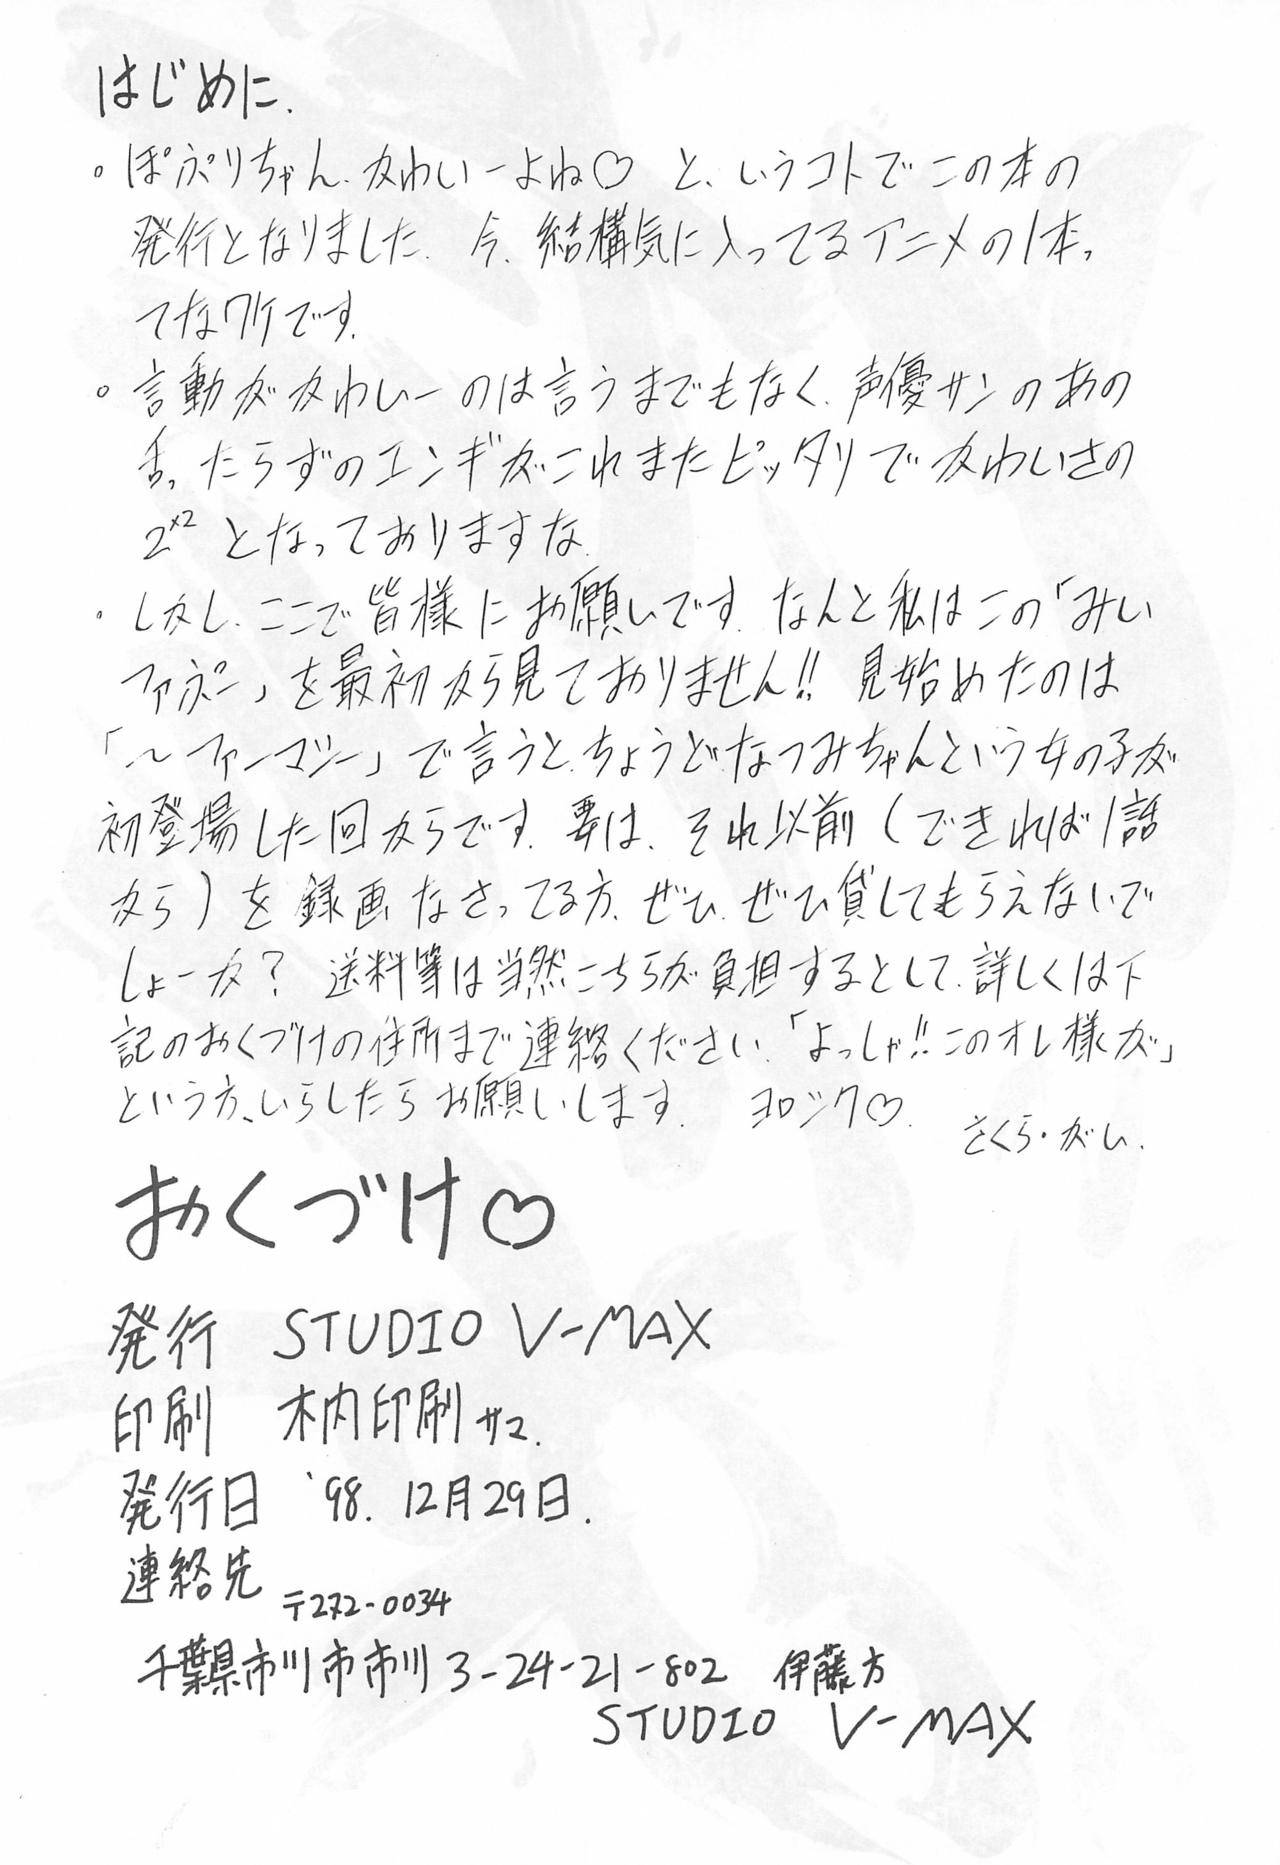 はじめに.
。ぽぷりちゃん、かわいーよね♡ と、いうコトでこの本の
発行となりました. 今、結構気に入ってるアニメの1本っ
てなワケです.
。言動がかわいーのは言うまでもなく、声優サンのあの
舌ったらずのエンギがこれまたピッタリでかわいさの
2ˣ² となっておりますな.
・しかし、ここで皆様にお願いです. なんと私はこの「みい
ファぷー」を最初から見ておりません!! 見始めたのは
「〜ファーマシー」で言うと、ちょうどなつみちゃんという女の子が
初登場した回からです. 要は、それ以前(できれば1話
から)を録画なさってる方、ぜひ、ぜひ貸してもらえないで
しょーか? 送料等は当然こちらが負担するとして、詳しくは下
記のおくづけの住所まで連絡ください.「よっしゃ!!このオレ様が」
という方、いらしたらお願いします. ヨロシク♡.
さくら・がい.
おくづけ♡
発行 STUDIO V-MAX
印刷 木内印刷サマ.
発行日 '98. 12月29日.
連絡先
〒272-0034
千葉県市川市市川3-24-21-802 伊藤方
STUDIO V-MAX